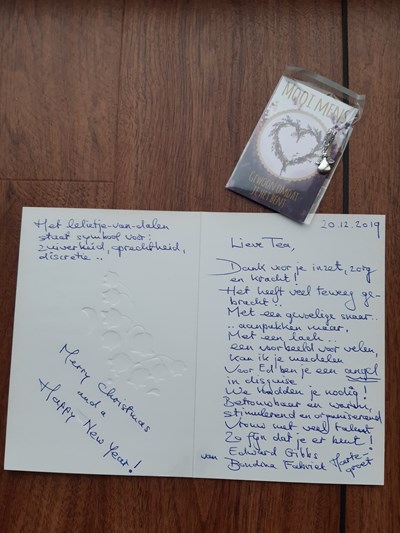 MOOI MENS
GEWOON OMDAT
JE JIJ BENT
Het lelietje-van-dalen
staat symbool voor:
zuiverheid, oprechtheid,
discretie..
Merry Christmas
and a
Happy New Year!
20.12.2019
Lieve Tea,
Dank voor je inzet, zorg
en kracht!
Het heeft veel teweeg ge-
bracht..
Met een gevoelige snaar..
..aanpakken maar,
Met een lach..
een voorbeeld voor velen,
kan ik je meedelen
Voor Ed ben je een angel
in disguise
We hadden je nodig!
Betrouwbaar en warm,
stimulerend en organiserend
Vrouw met veel talent
Zo fijn dat je er bent!
van Edward Gibbs
Bondina Fabriek Harte-
groet